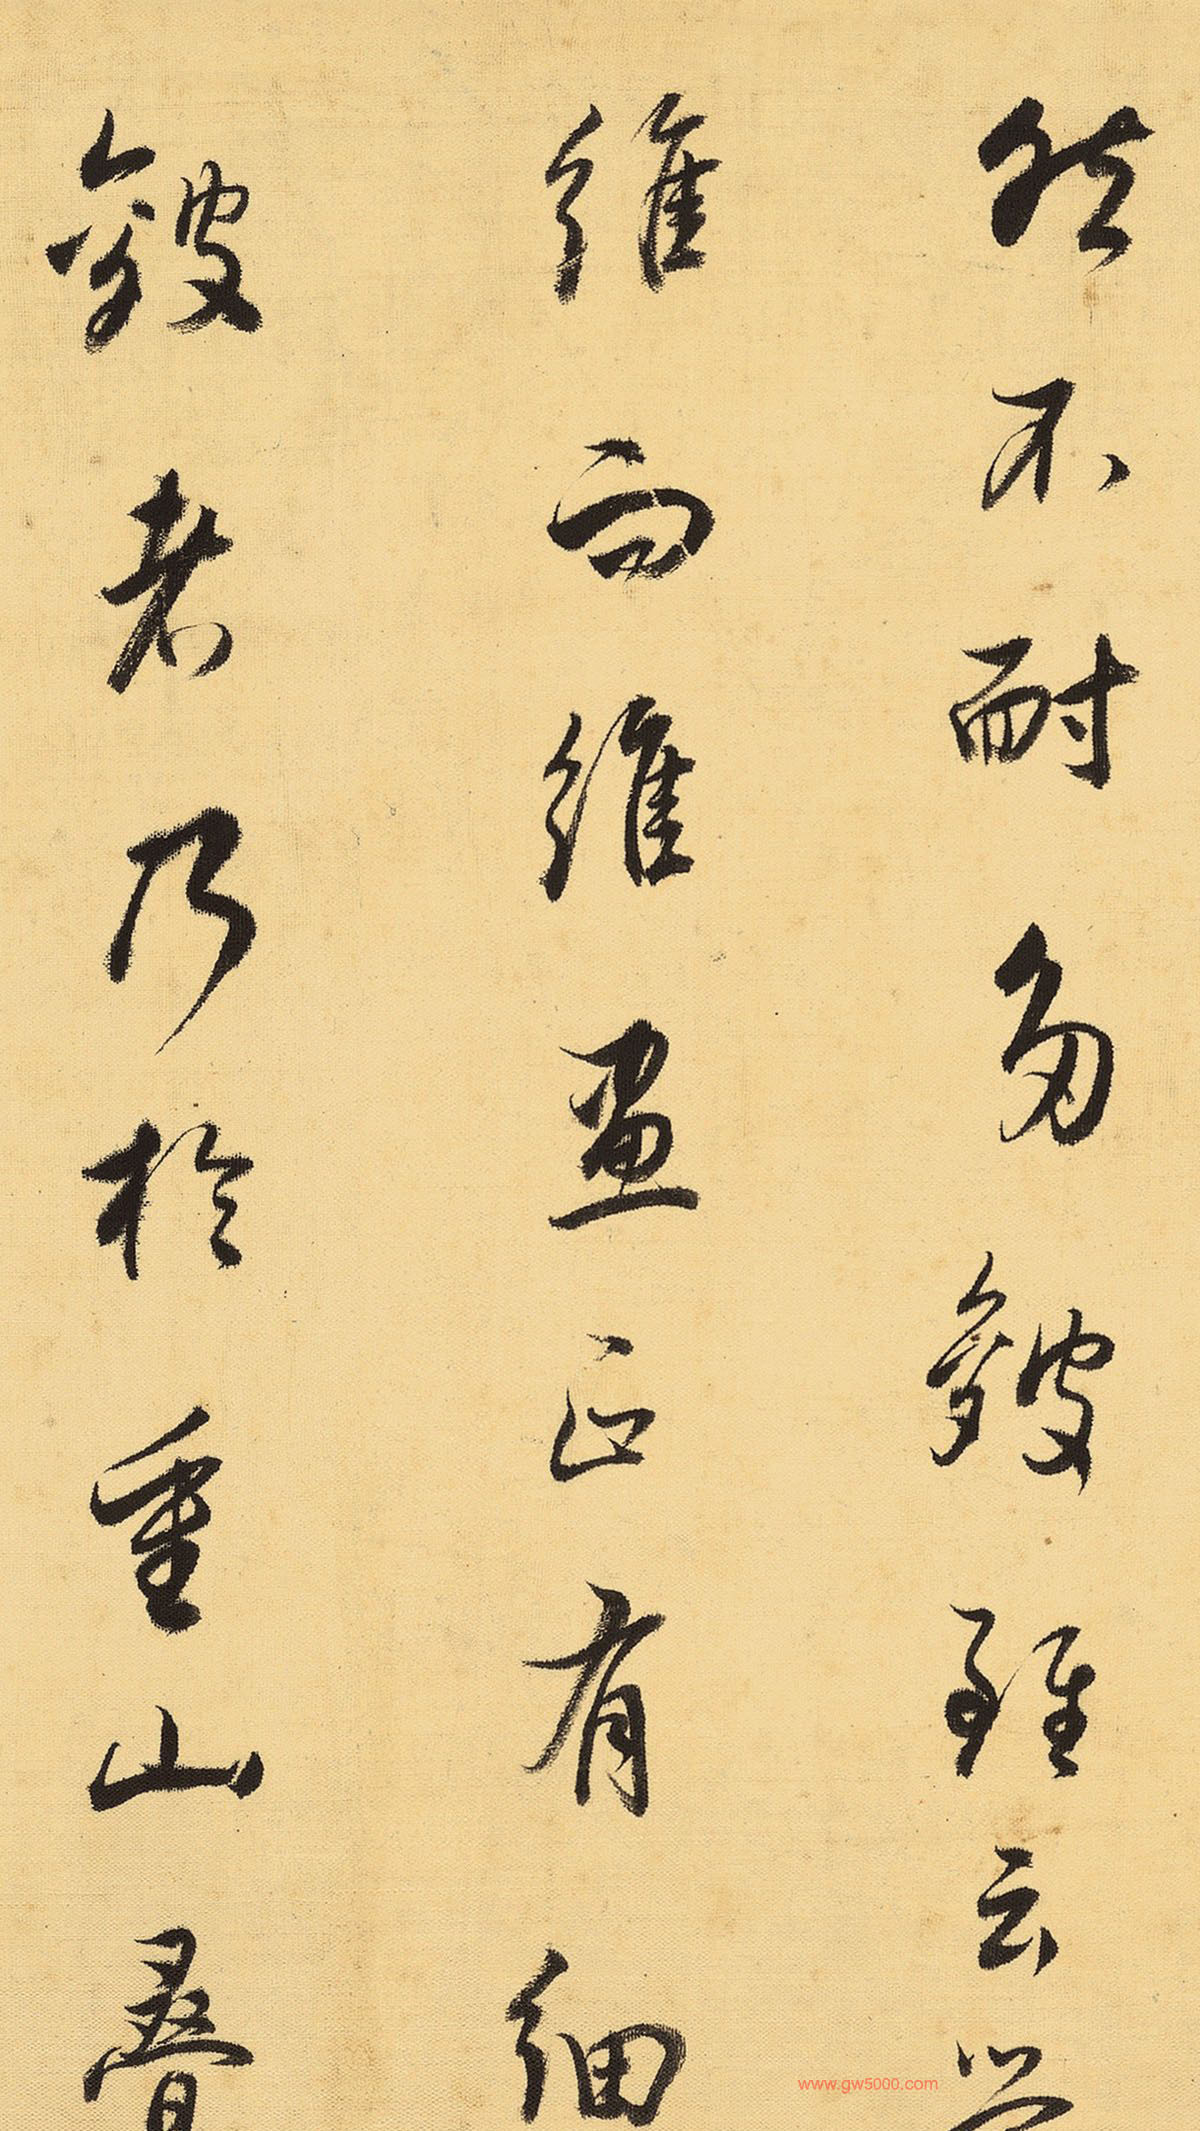 然不耐多皴雖云學
維而維畫正有細
皴者乃於重山疊
www.gw5000.com